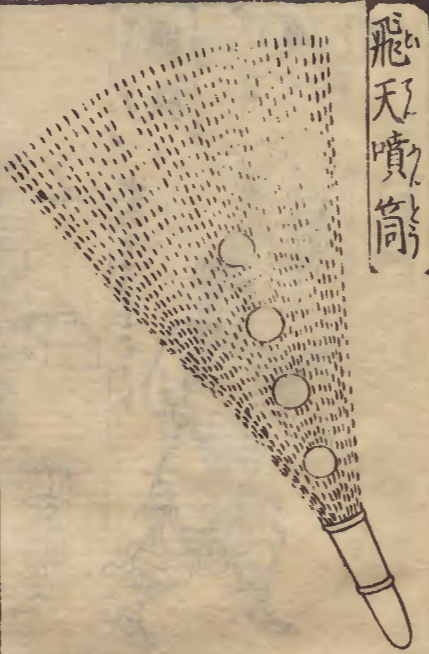 飛天噴筒